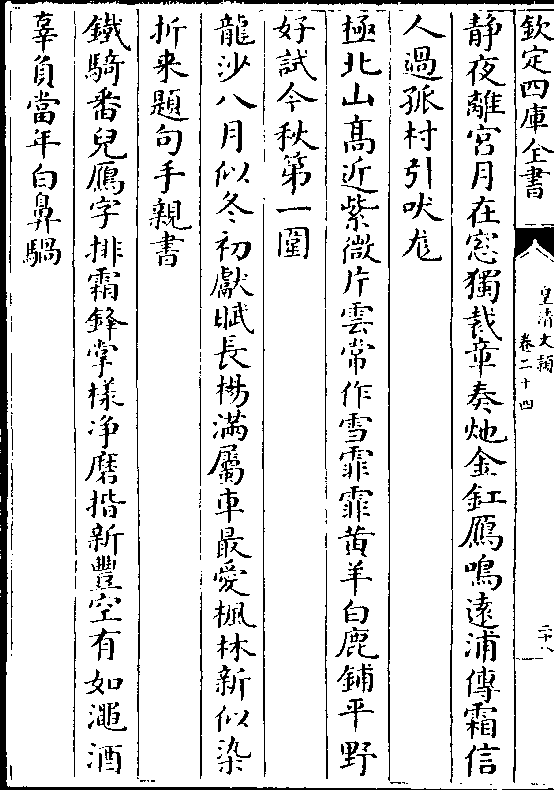 欽定四庫全書
皇清文穎
卷二十四
二十八
静夜離宫月在窓獨裁章奏灺金釭鴈鳴逺浦傳霜信
人過孤村引吠尨
極北山髙近紫微片雲常作雪霏霏黄羊白鹿鋪平野
好試今秋第一圍
龍沙八月似冬初獻賦長楊滿屬車最愛楓林新似染
折来題句手親書
鐵騎番兒鴈字排霜鋒掌様净磨揩新豐空有如澠酒
辜負當年白鼻騧